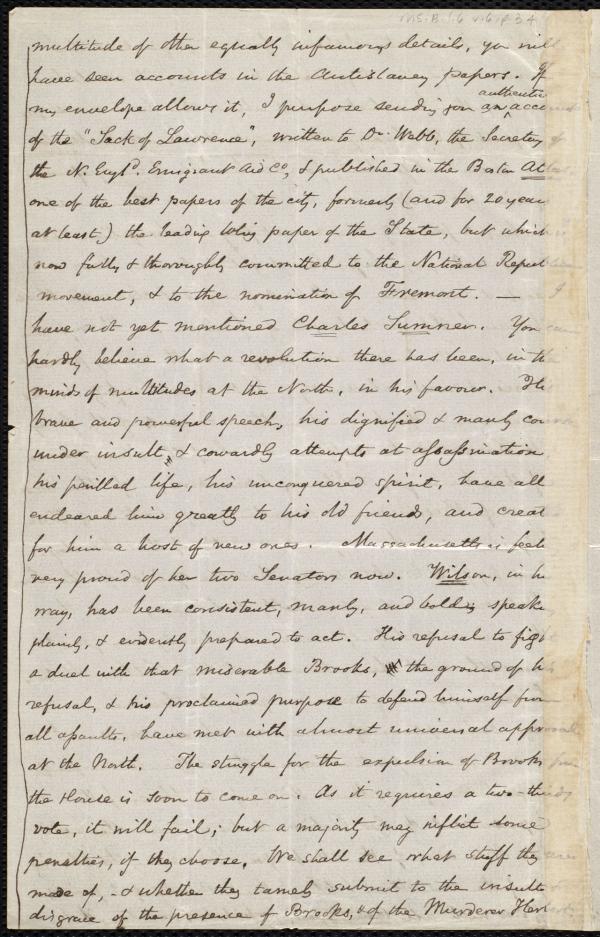 MS.B.1.6 v.6, p.34
multitude of other equally infamous details, you will
have seen accounts in the Antislavery papers. If
authentic
my envelope allows it, I purpose sending you an account
of the "Sack of Lawrence", written to Dr. Webb, the Secretary of
the N. Engld. Emigrant Aid Co., & published in the Boston Atlas,
one of the best papers of the city, formerly (and for 20 years
at least) the leading Whig paper of the State, but which is
now fully & thoroughly committed to the National Republican
movement, & to the nomination of Fremont. — I
have not yet mentioned Charles Sumner. You can
hardly believe what a revolution there has been, in the
minds of multitudes at the North, in his favour. His
brave and powerful speech, his dignified & manly course
under insult, & cowardly attempts at assassination,
his perilled life, his unconquered spirit, have all
endeared him greatly to his old friends, and created
for him a host of new ones. Massachusetts is feeling
very proud of her two Senators now. Wilson, in his
way, has been consistent, manly, and bold in speaking
plainly, & evidently prepared to act. His refusal to fight
a duel with that miserable Brooks, the ground of his
refusal, & his proclaimed purpose to defend himself from
all assaults, have met with almost universal approval
at the North. The struggle for the expulsion of Brooks from
the House is soon to come on. As it requires a two-thirds
vote, it will fail; but a majority may inflict some
penalties, if they choose. We shall see what stuff they are
made of, & whether they tamely submit to the insult &
disgrace of the presence of Brooks, & of the Murderer Herbert